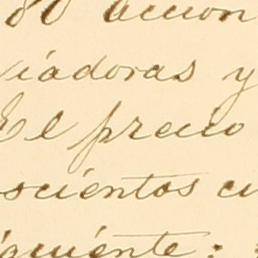 80 accion
viadoras y
El precio
scientos cu
iguiente: